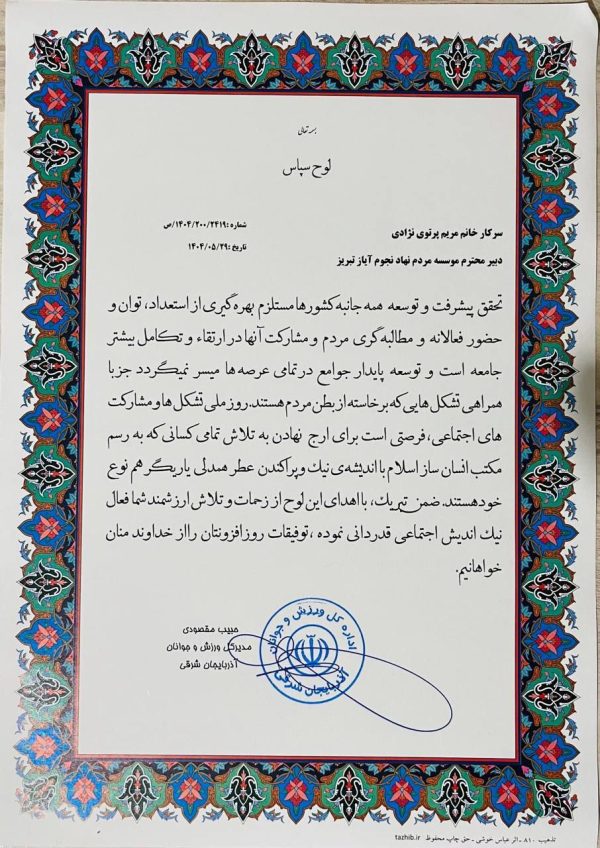 بسمه تعالی
لوح سپاس
شماره :۱۴۰۴/۲۰۰/۲۴۱۹/ص
تاریخ :۱۴۰۴/۰۵/۲۹
سرکار خانم مریم پرتوی نژادی
دبیر محترم موسسه مردم نهاد نجوم آیاز تبریز
تحقق پیشرفت و توسعه همه جانبه کشورها مستلزم بهره گیری از استعداد، توان و
حضور فعالانه و مطالبه گری مردم و مشارکت آنها در ارتقاء و تکامل بیشتر
جامعه است و توسعه پایدار جوامع در تمامی عرصه ها میسر نمیگردد جز با
همراهی تشکل هایی که برخاسته از بطن مردم هستند. روز ملی تشکل ها و مشارکت
های اجتماعی، فرصتی است برای ارج نهادن به تلاش تمامی کسانی که به رسم
مکتب انسان ساز اسلام با اندیشه‌ی نیک و پراکندن عطر همدلی یاریگر هم نوع
خود هستند. ضمن تبریک، با اهدای این لوح از زحمات و تلاش ارزشمند شما فعال
نیک اندیش اجتماعی قدردانی نموده ، توفیقات روزافزونتان را از خداوند منان
خواهانیم.
حبیب مقصودی
مدیرکل ورزش و جوانان
آذربایجان شرقی
اداره کل ورزش و جوانان
آذربایجان شرقی
تذهیب ۸۱۰ - اثر عباس خوشی - حق چاپ محفوظ tazhib.ir